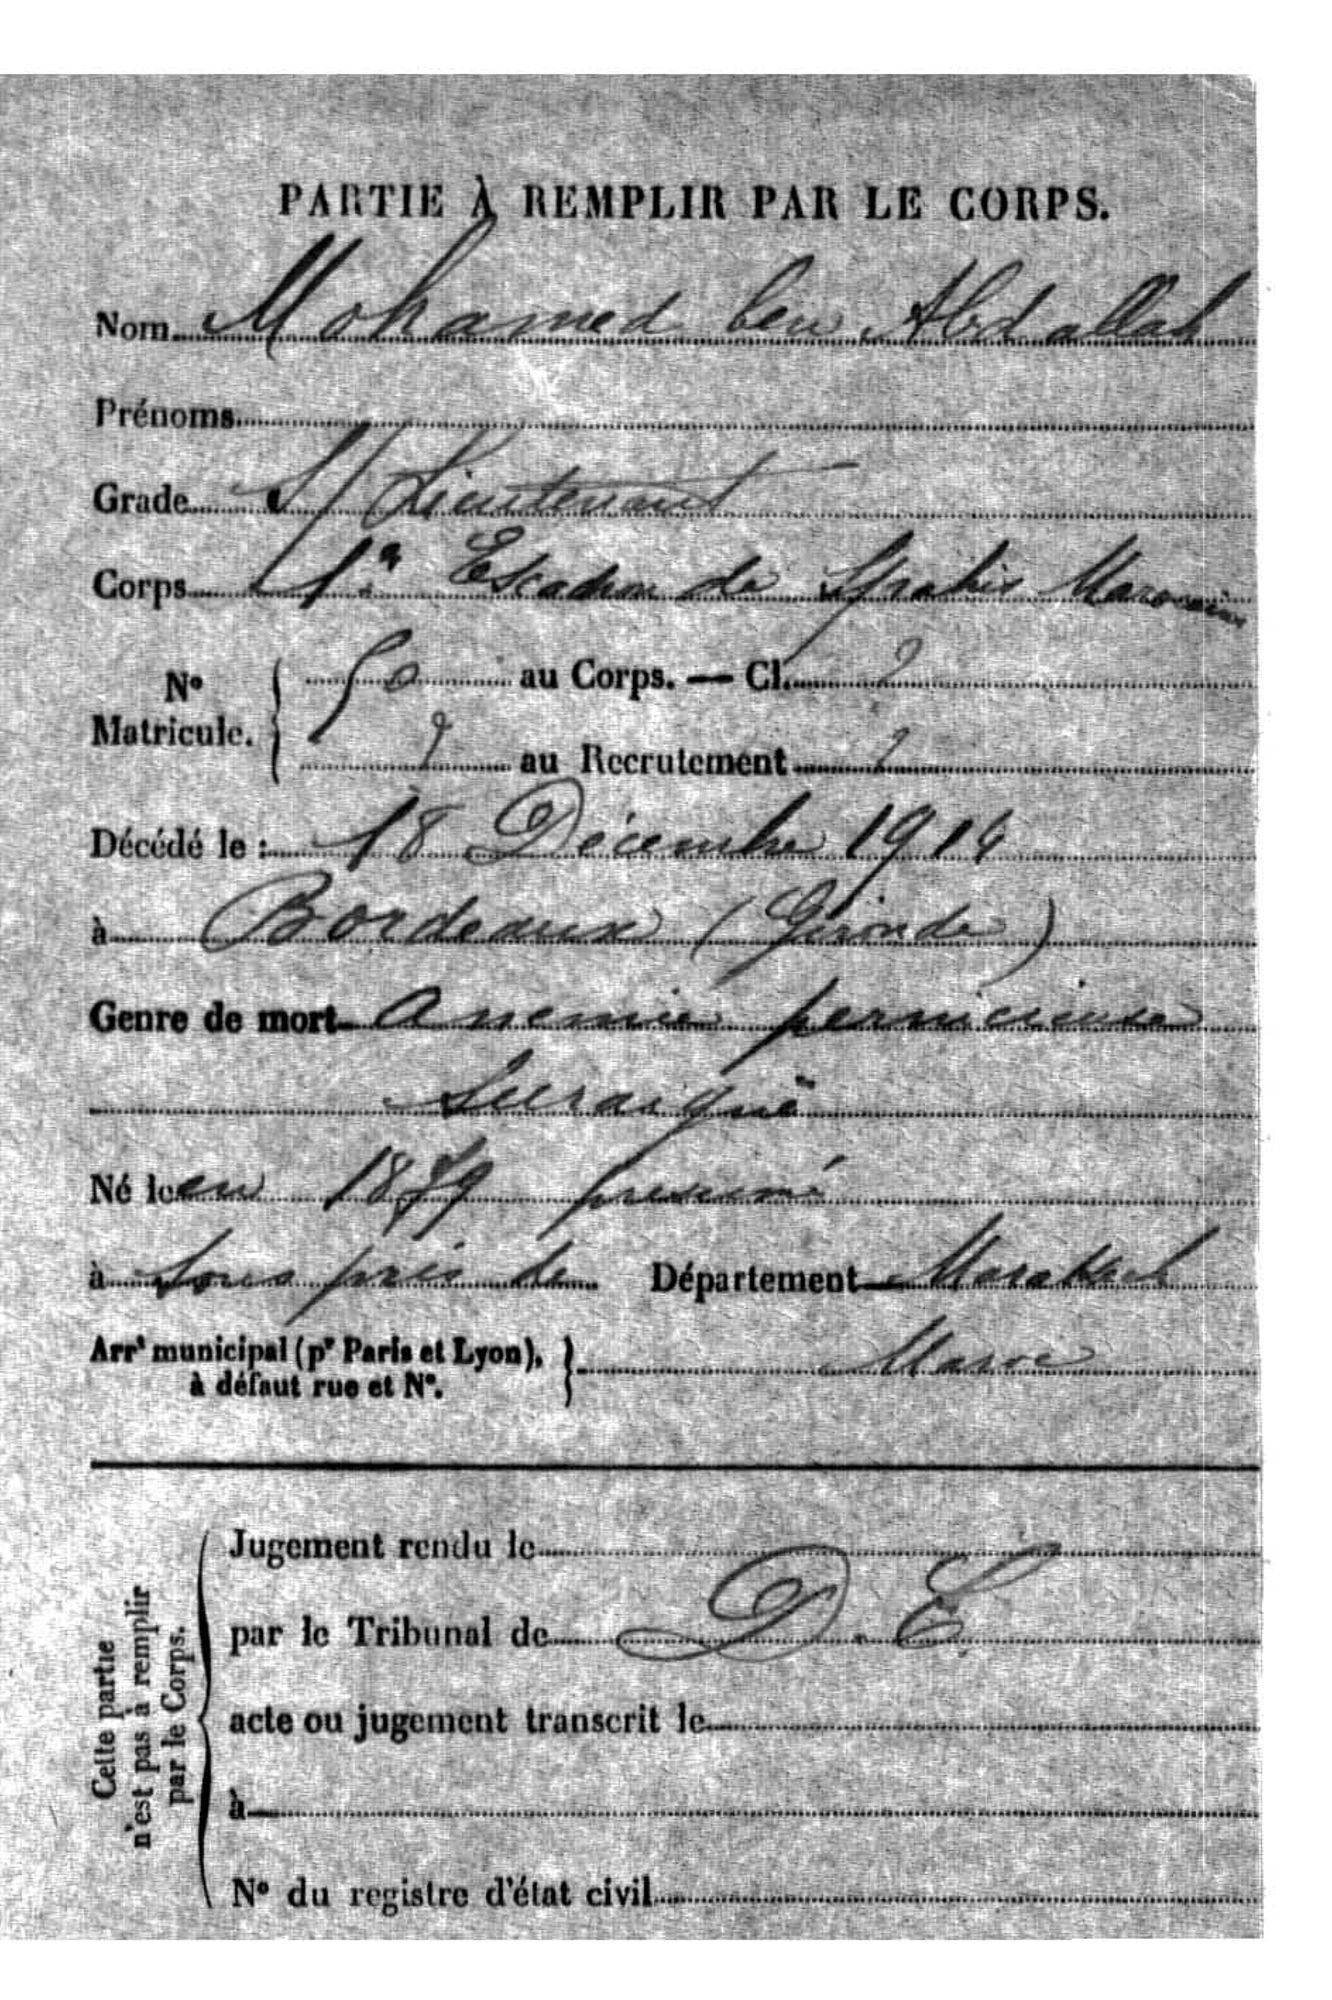 PARTIE À REMPLIR PAR LE CORPS.
Nom Mohamed ben Abdallah
Prénoms
Grade S/Lieutenant
Corps 1er Escadron de Spahis Marocains
N° Matricule. { 50 au Corps. — Cl. ?
? au Recrutement ?
Décédé le : 18 Décembre 1914
à Bordeaux (Gironde)
Genre de mort anemie pernicieuse
Suraiguë
Né le en 1879 presumé
à Sous près de Département Marakech
Arrt municipal (pr Paris et Lyon), à défaut rue et N°. } Maroc
Cette partie n'est pas à remplir par le Corps.
Jugement rendu le
par le Tribunal de D. E.
acte ou jugement transcrit le
à
N° du registre d'état civil